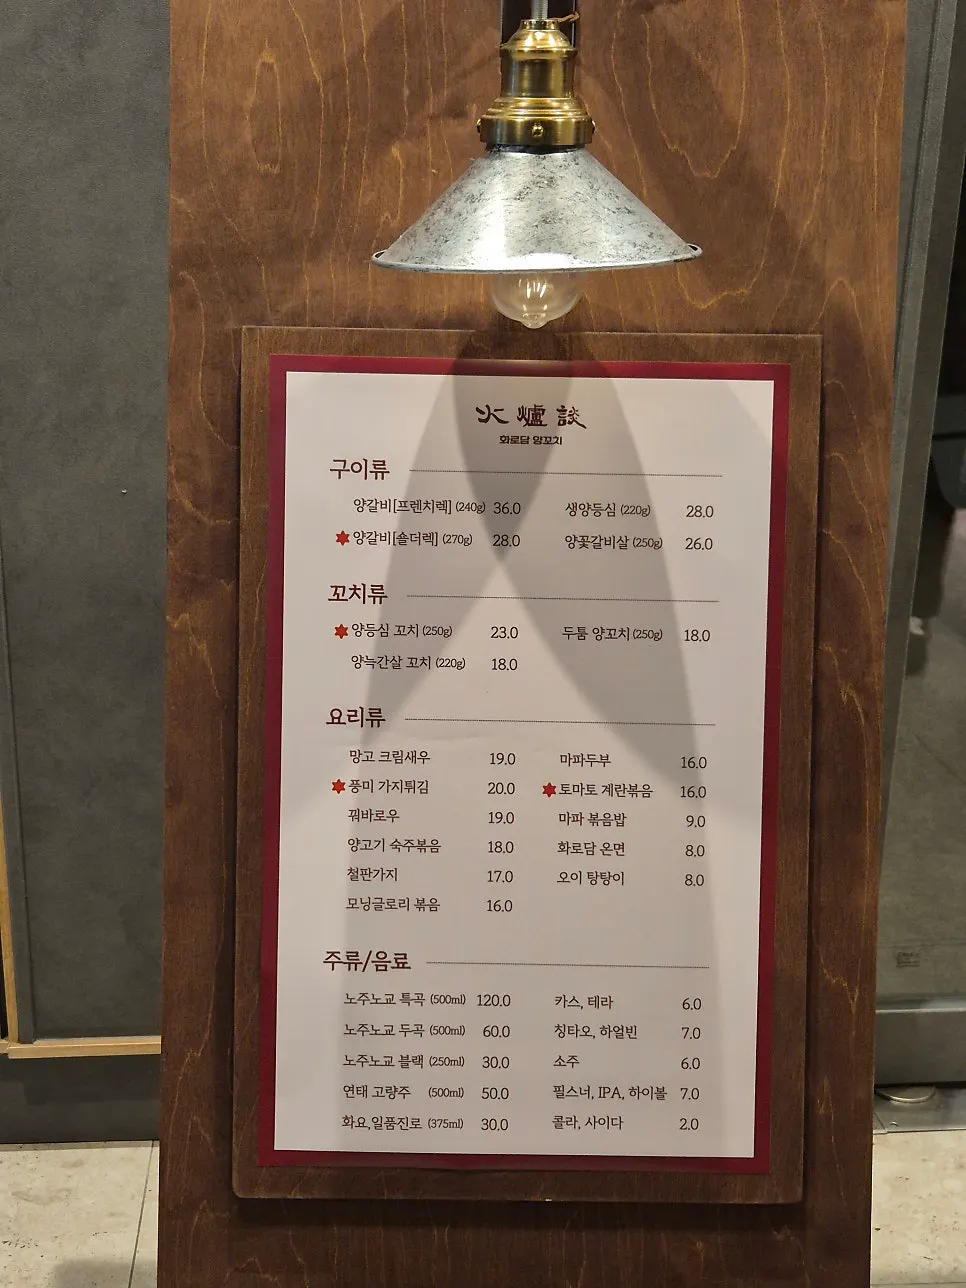 火爐談
화로담 양꼬치
구이류
양갈비[프렌치렉] (240g) 36.0
생양등심 (220g) 28.0
양갈비[숄더렉] (270g) 28.0
양꽃갈비살 (250g) 26.0
꼬치류
양등심 꼬치 (250g) 23.0
두툼 양꼬치 (250g) 18.0
양늑간살 꼬치 (220g) 18.0
요리류
망고 크림새우 19.0
마파두부 16.0
풍미 가지튀김 20.0
토마토 계란볶음 16.0
꿔바로우 19.0
마파 볶음밥 9.0
양고기 숙주볶음 18.0
화로담 온면 8.0
철판가지 17.0
오이 탕탕이 8.0
모닝글로리 볶음 16.0
주류/음료
노주노교 특곡 (500ml) 120.0
카스, 테라 6.0
노주노교 두곡 (500ml) 60.0
칭타오, 하얼빈 7.0
노주노교 블랙 (250ml) 30.0
소주 6.0
연태 고량주 (500ml) 50.0
필스너, IPA, 하이볼 7.0
화요,일품진로 (375ml) 30.0
콜라, 사이다 2.0